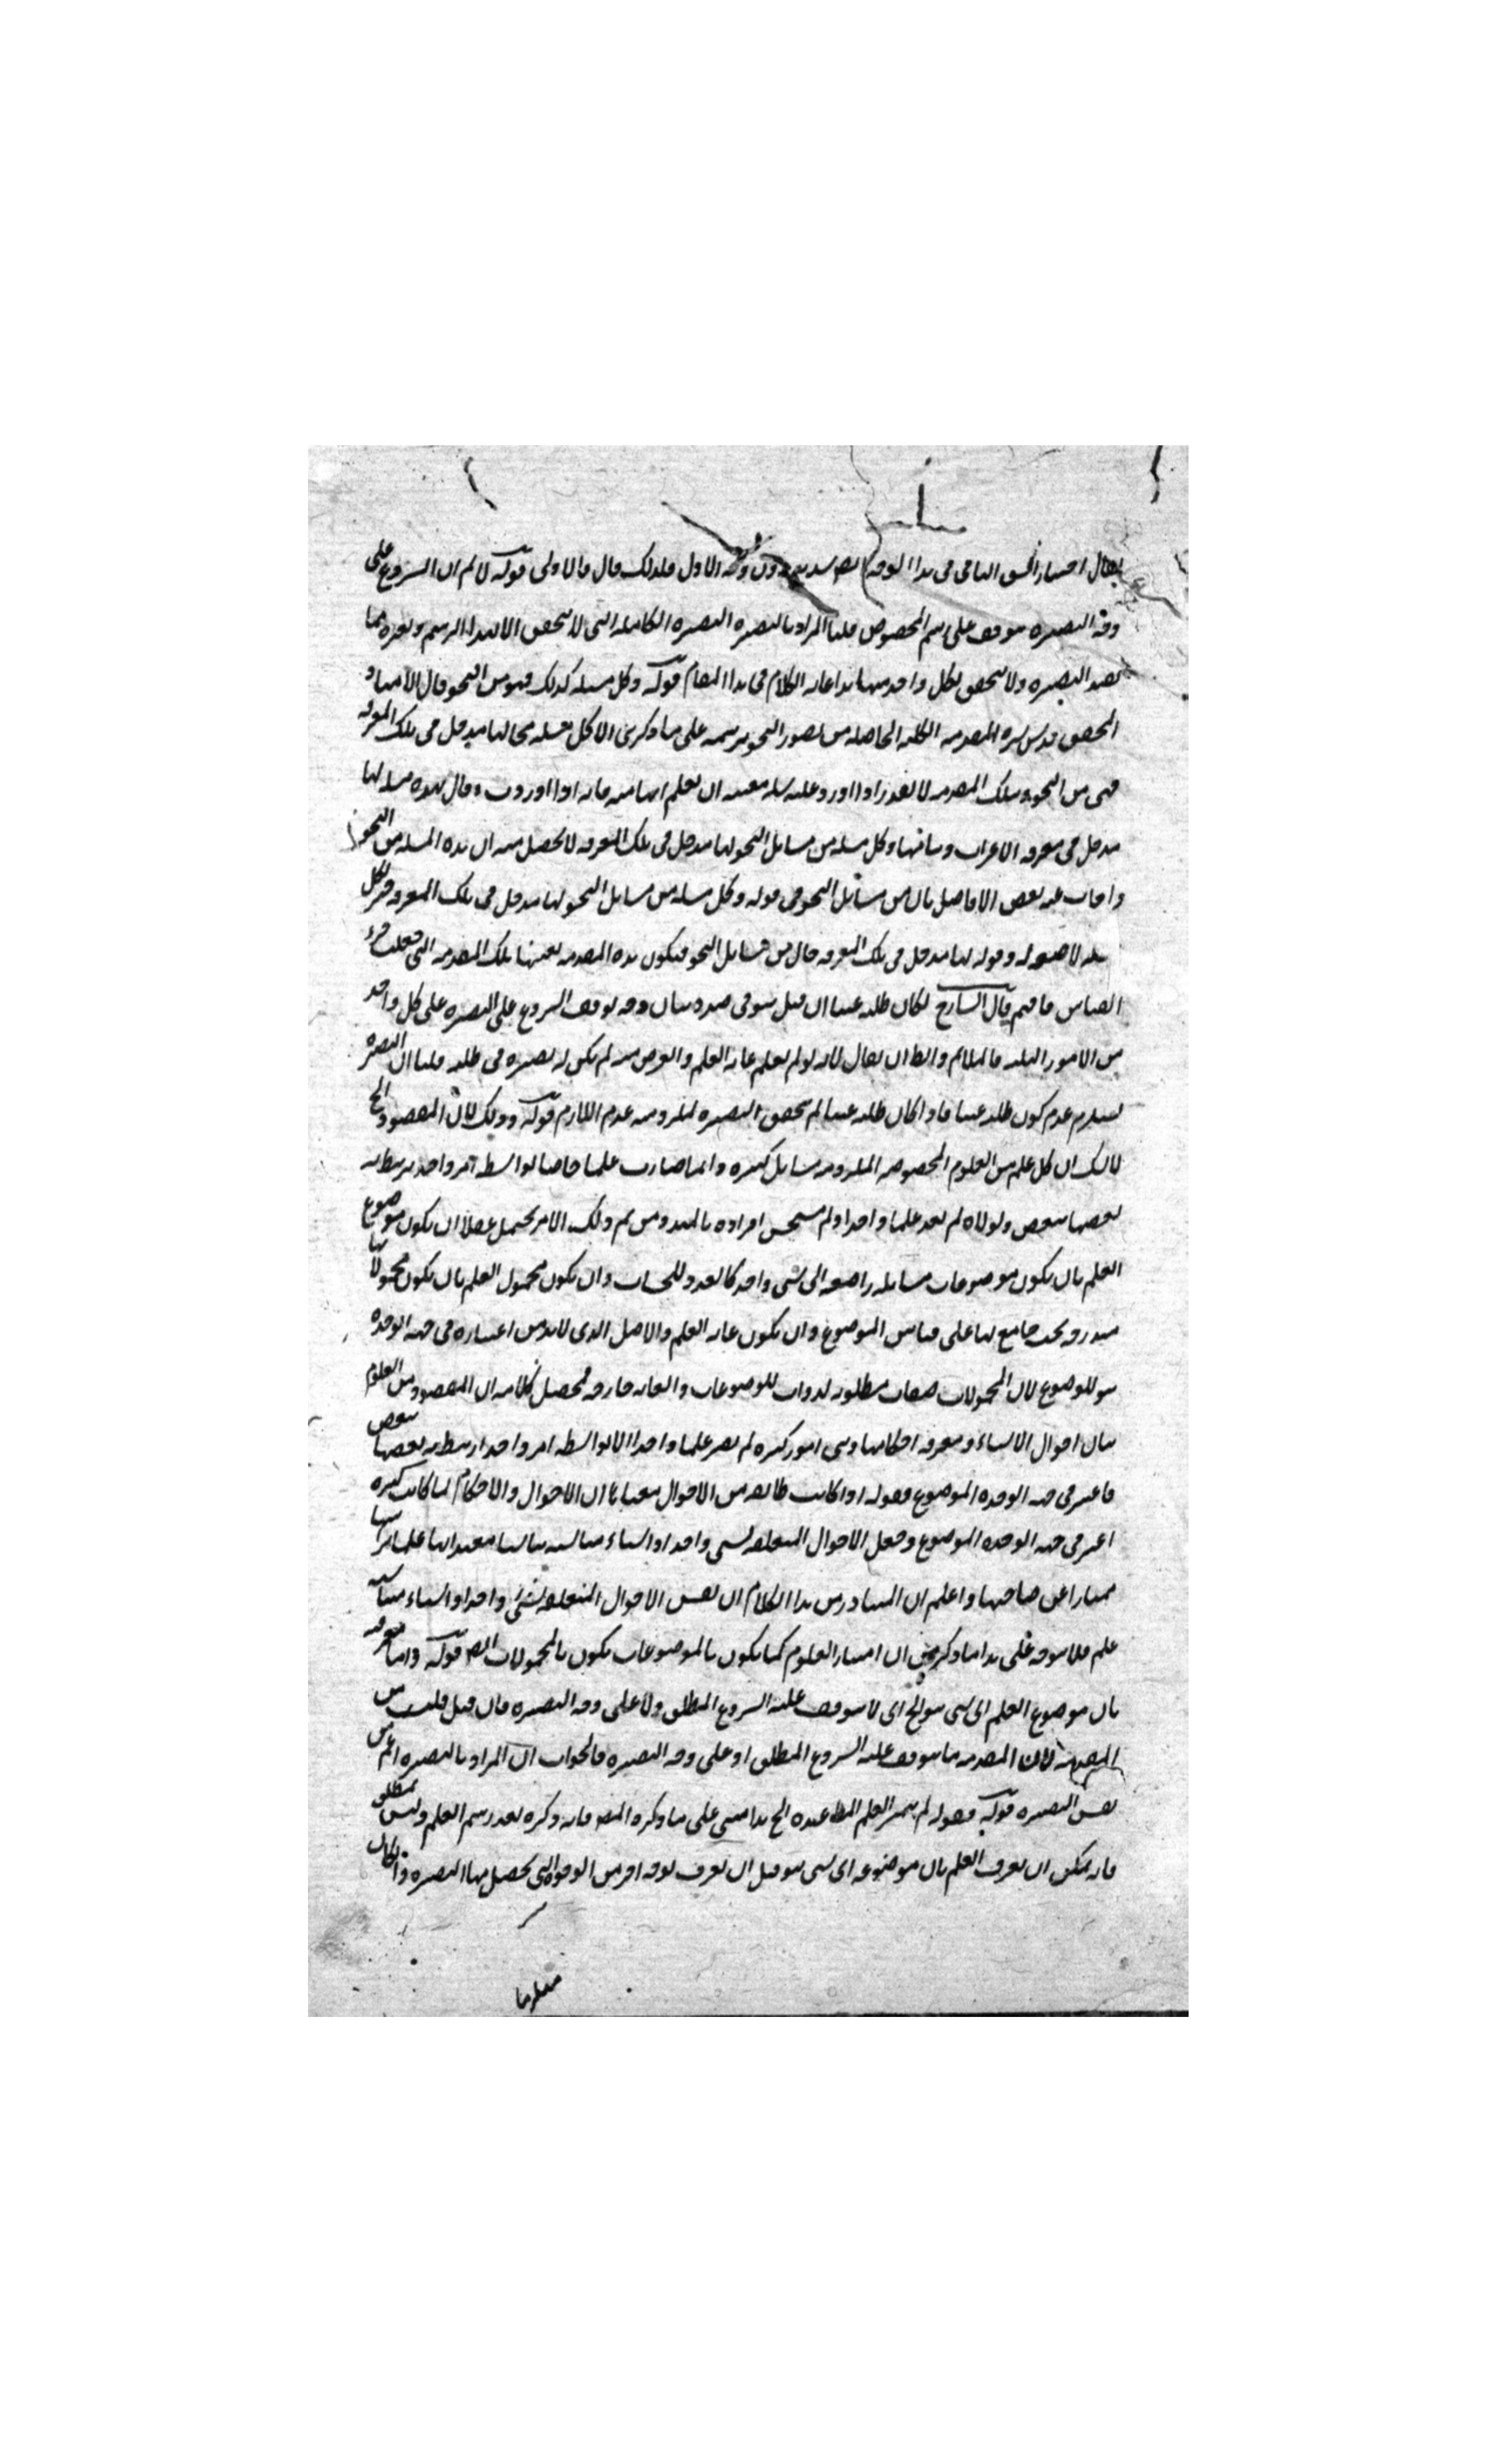 يقال اختيار الشق الثاني في هذا الوجه ايضا سديد دون وجه الاول فلذلك قال فالاولى قوله لا نم ان الشروع على
وجه البصيرة موقوف على رسم المخصوص قلنا المراد بالبصيرة البصيرة الكاملة التي لا تتحقق الا بهذا الرسم وبغيره مما
يفيد البصيرة ولا يتحقق بكل واحد منها هذا غاية الكلام في هذا المقام قوله وكل مسئلة كذلك فهو من النحو قال الاستاد
المحقق قدس سره المقدمة الكلية الحاصلة من تصور النحو برسمه على ما ذكر هي الا كل مسئلة مخالها مدخل في تلك المعرفة
فهي من النحو وبتلك المقدمة لا يقدر اذا اورد عليه مسئلة معينة ان يعلم انها منه فانه اذا اوردت وقال هذه مسئلة لها
مدخل في معرفة الاعراب وبنائها وكل مسئلة من مسائل النحو لها مدخل في تلك المعرفة لا يحصل منه ان هذه المسئلة من النحو
واجاب عنه بعض الافاضل بان من مسائل النحو في قوله وكل مسئلة من مسائل النحو لها مدخل في تلك المعرفة خبر لكل
مسئلة لا صفة له وقوله لها مدخل في تلك المعرفة حال من مسائل النحو فيكون هذه المقدمة بعينها تلك المقدمة التي جعلت جزء
القياس فافهم قال الشارح لكان طلبه عبثا ان قيل هو في صدد بيان وجه توقف الشروع على البصيرة على كل واحد
من الامور الثلثة فالملائم والظ ان يقال لانه لو لم يعلم غاية العلم والغرض منه لم يكن له بصيرة في طلبه قلنا ان البصيرة
يستلزم عدم كون طلبه عبثا فاذا كان طلبه عبثا لم يتحقق البصيرة لملزومية عدم اللازم قوله وذلك لان المقصود الخ
لا شك ان كل علم من العلوم المخصوصة المدونة مسائل كثيرة وانما صارت علما خاصا بواسطة امر واحد يرتبط به
بعضها ببعض ولولاه لم يعد علما واحدا ولم يستحسن افراده بالتدوين ثم ذلك الامر يحتمل عقلا ان يكون موضوع
العلم بان يكون موضوعات مسائله راجعة الى شي واحد كالعدد للحساب وان يكون محمول العلم بان يكون محمولاتها
مندرجة تحت جامع لها على قياس الموضوع وان يكون غاية العلم والاصل الذي لا بد من اعتباره في جهة الوحدة
هو الموضوع لان المحمولات صفات مطلوبة لذوات الموضوعات والغاية خارجة فمحصل كلامه ان المقصود من العلوم
بيان احوال الاشياء ومعرفة احكامها وهي امور كثيرة لم يصر علما واحدا الا بواسطة امر واحد ارتبط به بعضها ببعض
فاعتبر في جهة الوحدة الموضوع فقوله اذا كانت طائفة من الاحوال معناه ان الاحوال والاحكام لما كانت كثيرة
اعتبر في جهة الوحدة الموضوع وجعل الاحوال المتعلقة بشي واحد او اشياء متناسبة تناسبا معتدا بها علما براسها
ممتازا عن صاحبها واعلم ان المتبادر من هذا الكلام ان نفس الاحوال المتعلقة بشي واحد او اشياء متناسبة
علم فلا يتوجه على هذا ما ذكر من ان امتياز العلوم كما يكون بالموضوعات يكون بالمحمولات ايضا قوله واما معرفة
بان موضوع العلم اي شي هو الخ اي لا يتوقف عليه الشروع المطلق ولا على وجه البصيرة فان قيل فليست من
المقدمة لان المقدمة ما يتوقف عليه الشروع المطلق او على وجه البصيرة فالجواب ان المراد بالبصيرة اعم من
نفس البصيرة قوله فقوله لم يتميز العلم المط عنده الخ هذا مبني على ما ذكره المص فانه ذكره بعد رسم العلم وليس بمطلق
فانه يمكن ان يعرف العلم بان موضوعه اي شي هو قبل ان يعرف بوجه اخر من الوجوه التي يحصل بها البصيرة وان كان